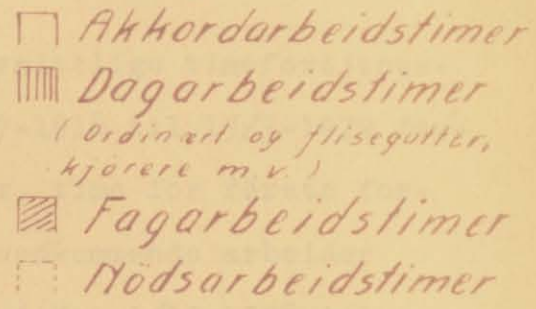 Akkordarbeidstimer
Dagarbeidstimer
( Ordinært og flisegutter,
kjörere m.v.)
Fagarbeidstimer
Nödsarbeidstimer